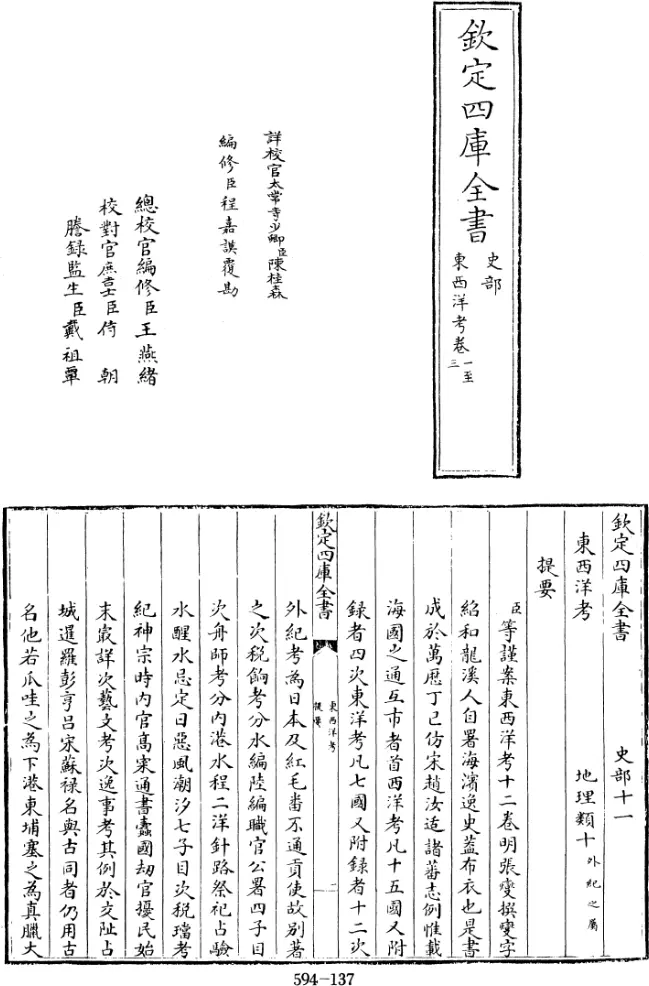 欽定四庫全書
史部
東西洋考卷一至三
詳校官太常寺少卿臣陳桂森
編修臣程嘉謨覆勘
總校官編修臣王燕緒
校對官庶吉士臣侍朝
謄錄監生臣戴祖覃
欽定四庫全書 史部十一
東西洋考 地理類十外紀之屬
提要
臣等謹案東西洋考十二卷明張燮撰燮字
紹和龍溪人自署海濱逸史蓋布衣也是書
成於萬厯丁巳仿宋趙汝适諸蕃志例惟載
海國之通互市者首西洋考凡十五國又附
錄者四次東洋考凡七國又附錄者十二次
欽定四庫全書
東西洋考
提要
一
外紀考為日本及紅毛畨不通貢使故别著
之次税餉考分水編陸編職官公署四子目
次舟師考分内港水程二洋針路祭祀占驗
水醒水忌定日惡風潮汐七子目次税璫考
紀神宗時内官髙寀通書蠧國刼官擾民始
末㝡詳次藝文考次逸事考其例於交阯占
城暹羅彭亨吕宋蘇禄名與古同者仍用古
名他若瓜哇之為下港東埔塞之為真臘大
594-137